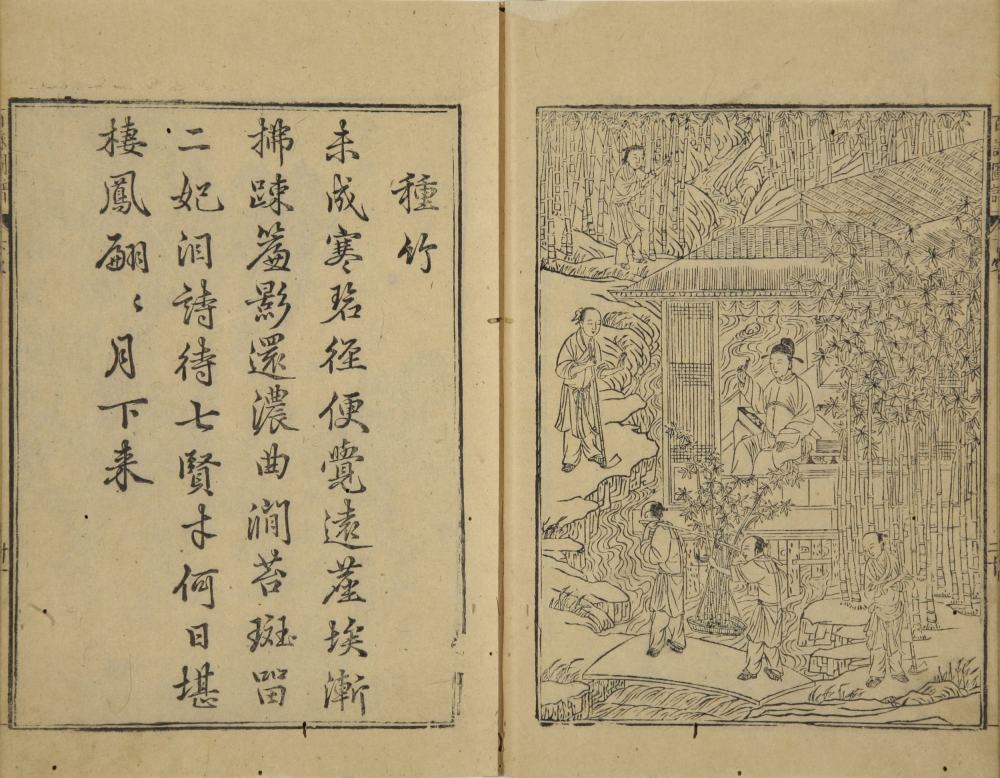 種竹
未成寒碧径便覺遠塵埃漸
拂踈簷影還濃曲澗苔斑留
二妃泪詩待七賢才何日堪
棲鳳翩〻月下来